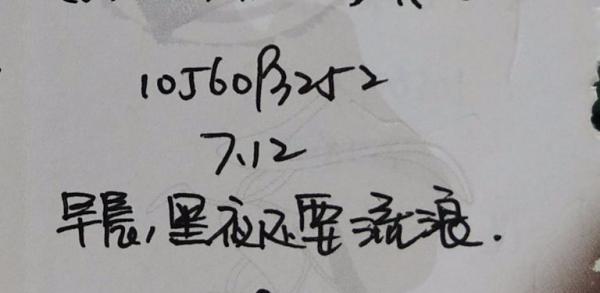 10560β3252
7.12
早晨,黑夜还要流浪.